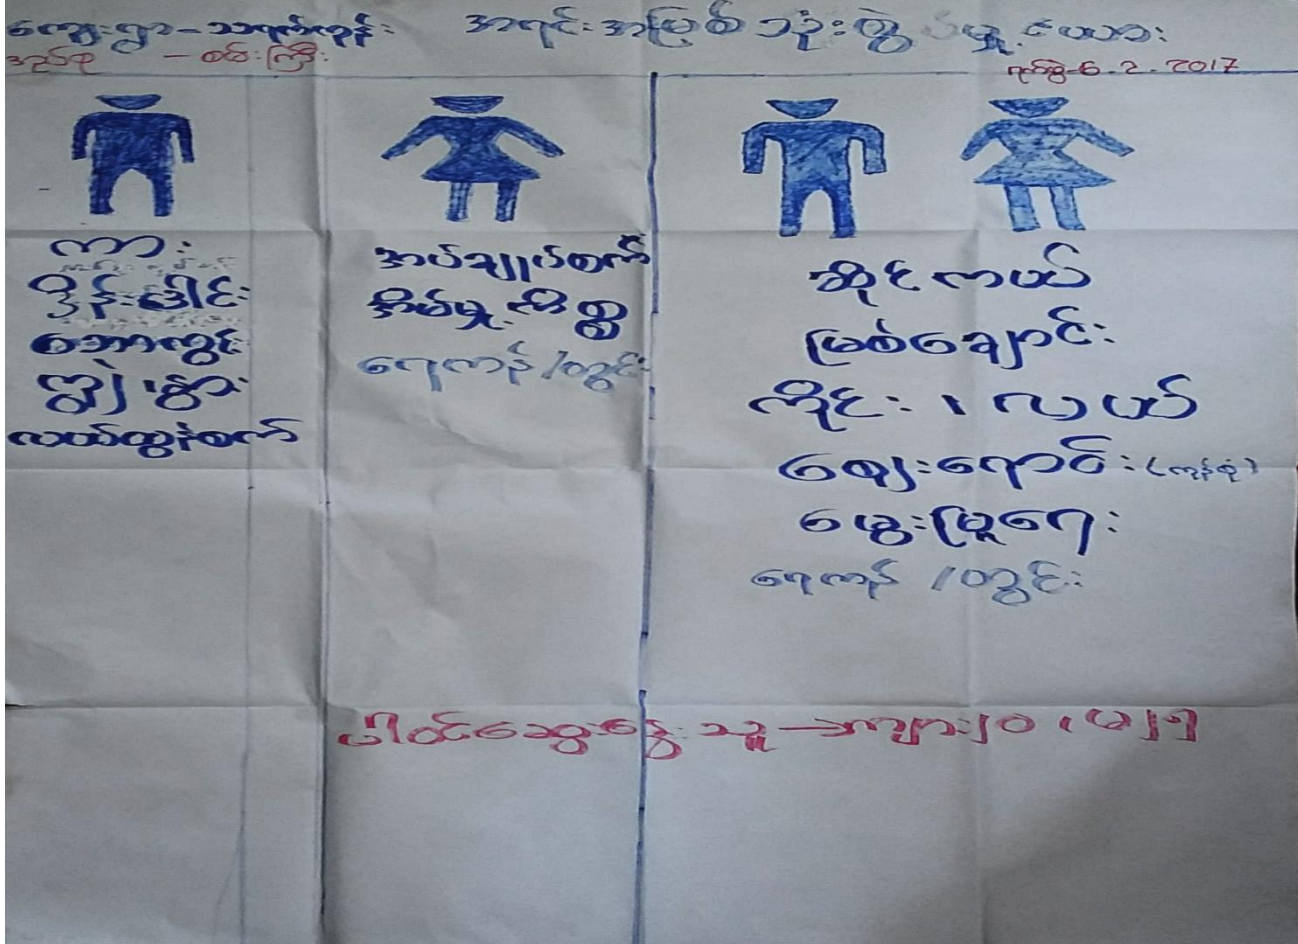 ကျေးရွာ - သရက်ကုန်း
အရင်းအမြစ်သုံးစွဲမှုဇယား
အုပ်စု - စမ်းကြီး
ရက်စွဲ - 6.2.2017
ကား
ဒိုန်းဒေါင်း
ဘောလွင်
ကျွဲ၊ နွား
လယ်ထွန်စက်
အပ်ချုပ်စက်
အိမ်မှုကိစ္စ
ရေကန်/တွင်း
ဆိုင်ကယ်
မြစ်ချောင်း
ကိုင်း၊ လယ်
ဈေးရောင်း (ကုန်စုံ)
မွေးမြူရေး
ရေကန် / တွင်း
ပါဝင်ဆွေးနွေးသူ → ကျား/၁၊ မ/၅